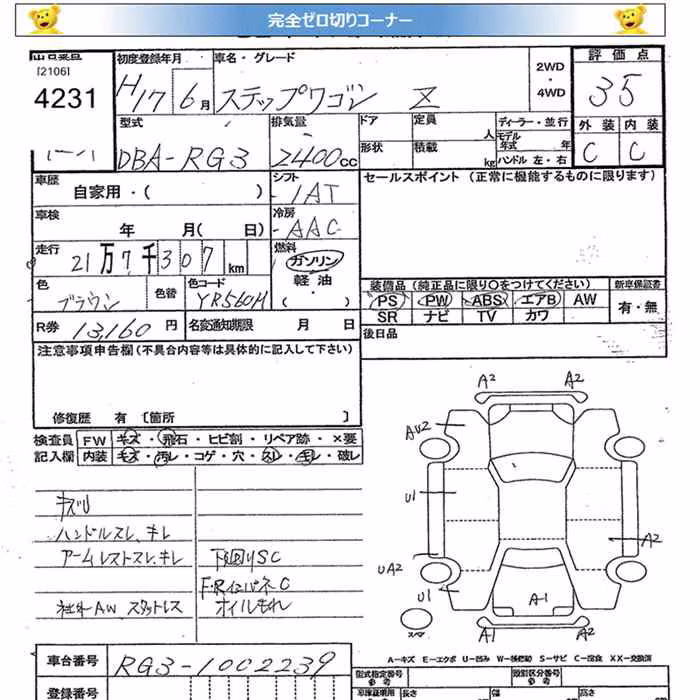 完全ゼロ切りコーナー
[2106]
4231
初度登録年月 車名・グレード
H17 6月 ステップワゴン Z
2WD・4WD
評価点
35
外装 内装
C C
型式 排気量 ドア 定員 人 ディーラー・並行
DBA-RG3 2400cc 形状 積載 kg モデル年式 年
ハンドル 左・右
車歴 自家用・( ) シフト IAT
セールスポイント (正常に機能するものに限ります)
車検 年 月( 日) 冷房 AAC
走行 21万7千307km 燃料 ガソリン 軽油・( )
色 ブラウン 色替 色コード YR560M
装備品 (純正品に限り○をつけてください) 新車保証書
PS PW ABS エアB AW 有・無
SR ナビ TV カワ
R券 13,160円 名変通知期限 月 日
後日品
注意事項申告欄(不具合内容等は具体的に記入して下さい)
修復歴 有 [箇所 ]
検査員 FW キズ・飛石・ヒビ割・リペア跡・×要
記入欄 内装 キズ・汚レ・コゲ・穴・スレ・キレ・破レ
ハンドルスレ、キレ
アームレストスレ、キレ 下回りSC
F・RインパネC
社外AW スタットレス オイルもれ
A2 A2
AU2
U1
A2
UA2
U1
A-1
スペア
A1 A2
A-キズ E-エクボ U-凹み W-補修跡 S-サビ C-腐食 XX-交換済
車台番号 RG3-1002239
型式指定番号 参考 類別区分番号 参考
登録番号
長さ 幅 高さ